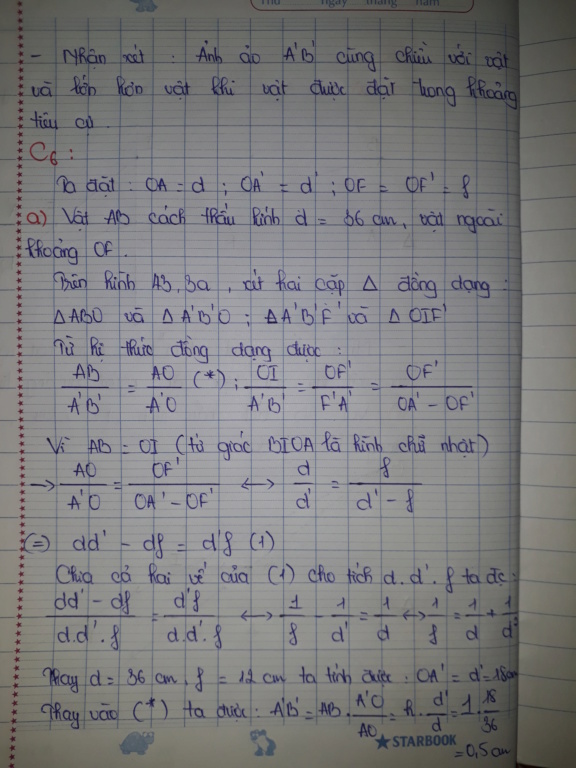 Thứ ngày tháng năm
- Nhận xét : Ảnh ảo A'B' cùng chiều với vật
và lớn hơn vật khi vật được đặt trong khoảng
tiêu cự.
C6 :
Ta đặt : OA = d ; OA' = d' ; OF = OF' = f
a) Vật AB cách thấu kính d = 36 cm, vật ngoài
khoảng OF.
Trên hình 43.3a, xét hai cặp Δ đồng dạng :
Δ ABO và Δ A'B'O ; Δ A'B'F' và Δ OIF'
Từ hệ thức đồng dạng được :
AB/A'B' = AO/A'O (*) ; OI/A'B' = OF'/F'A' = OF'/(OA' - OF')
Vì AB = OI (tứ giác BIOA là hình chữ nhật)
→ AO/A'O = OF'/(OA' - OF') ↔ d/d' = f/(d' - f)
(=) dd' - df = d'f (1)
Chia cả hai vế của (1) cho tích d.d'.f ta đc :
(dd' - df)/(d.d'.f) = d'f/(d.d'.f) ↔ 1/f - 1/d' = 1/d ↔ 1/f = 1/d + 1/d'
Thay d = 36 cm, f = 12 cm ta tính được : OA' = d' = 18cm
Thay vào (*) ta được : A'B' = AB . A'O/AO = h . d'/d = 1 . 18/36
= 0,5 cm
★STARBOOK